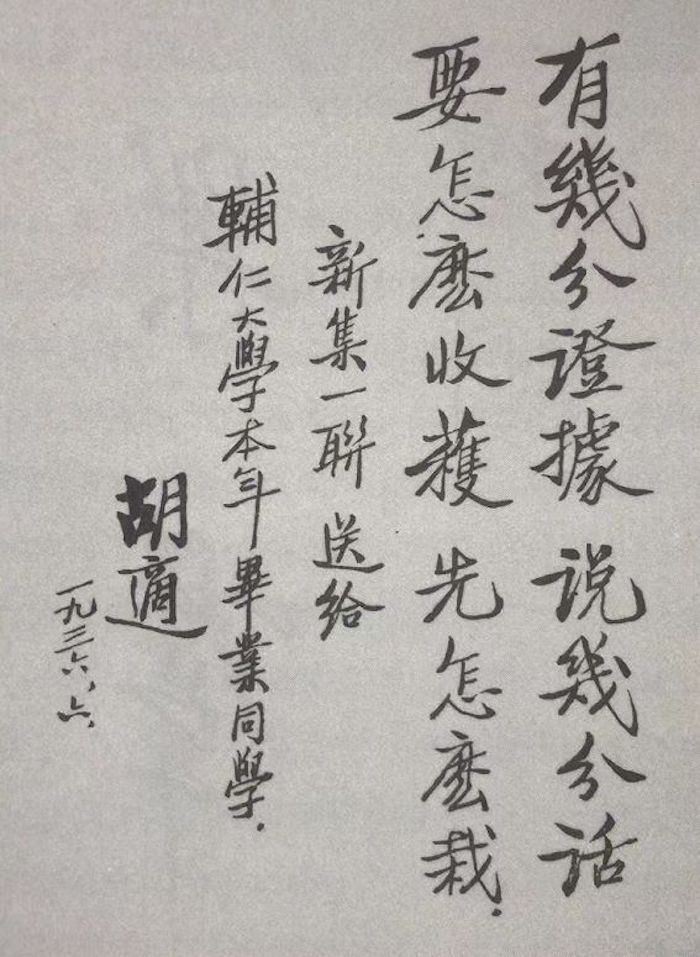 有幾分證據 说幾分话
要怎麽收穫 先怎麽栽.
新集一聯 送给
輔仁大學本年畢業同學.
胡適
一九三六、六、